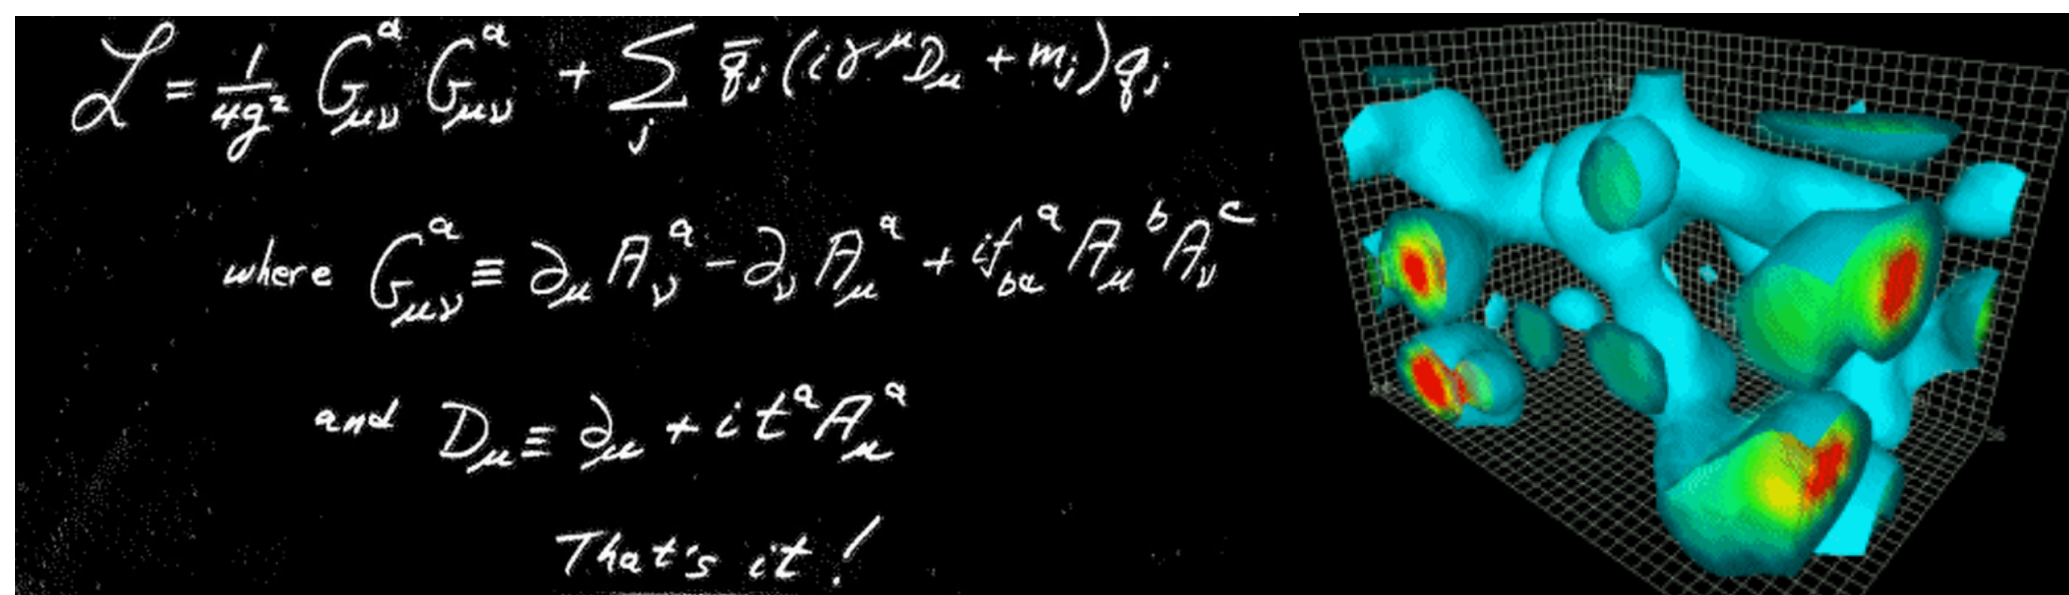 ℒ = 1/4g² G^a_μν G^a_μν + Σ_j q̄_j (iγ^μ D_μ + m_j) q_j
where G^a_μν ≡ ∂_μ A^a_ν − ∂_ν A^a_μ + if^a_bc A^b_μ A^c_ν
and D_μ ≡ ∂_μ + it^a A^a_μ
That's it!